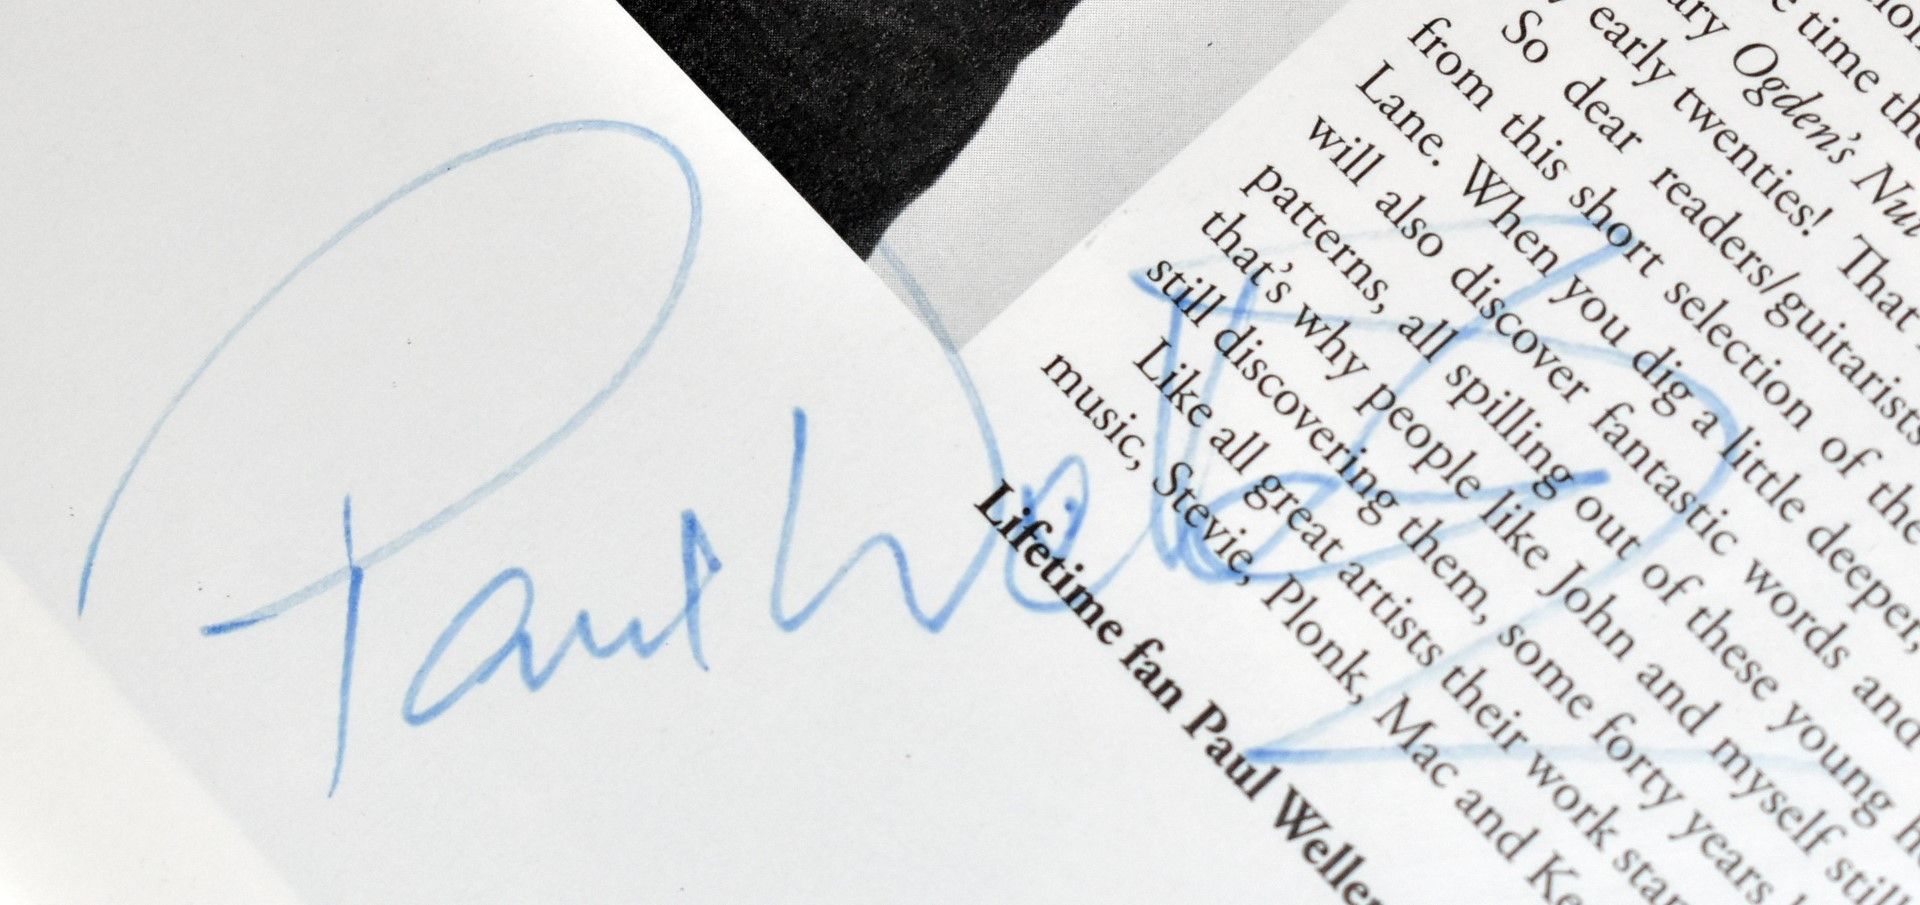 time th
ary Ogden's Nut
early twenties! That
So dear readers/guitarists
from this short selection of the
Lane. When you dig a little deeper,
will also discover fantastic words and
patterns, all spilling out of these young
that's why people like John and myself still
still discovering them, some forty years
Like all great artists their work
music, Stevie, Plonk, Mac and
Lifetime fan Paul Weller
Paul Weller